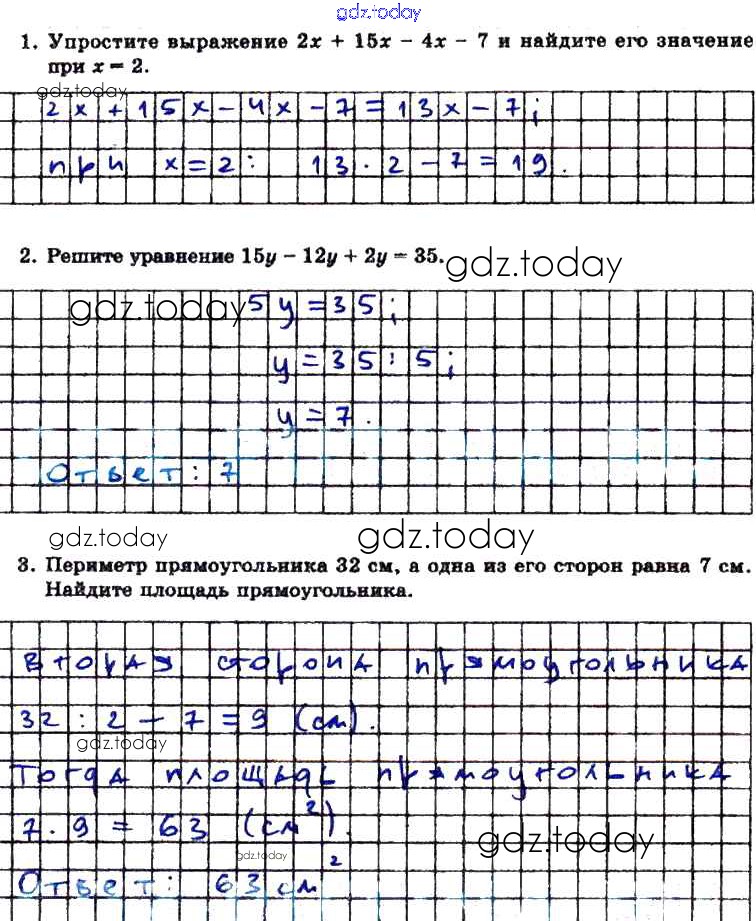 gdz.today
1. Упростите выражение 2x + 15x − 4x − 7 и найдите его значение
при x = 2.
gdz.today
2x+15x−4x−7=13x−7;
при x=2: 13·2−7=19.
2. Решите уравнение 15y − 12y + 2y = 35.
gdz.today
gdz.today
5y=35;
y=35:5;
y=7.
Ответ: 7
gdz.today
gdz.today
3. Периметр прямоугольника 32 см, а одна из его сторон равна 7 см.
Найдите площадь прямоугольника.
Вторая сторона прямоугольника
32:2−7=9 (см).
gdz.today
Тогда площадь прямоугольника
7·9=63 (см²).
gdz.today
gdz.today
Ответ: 63 см²